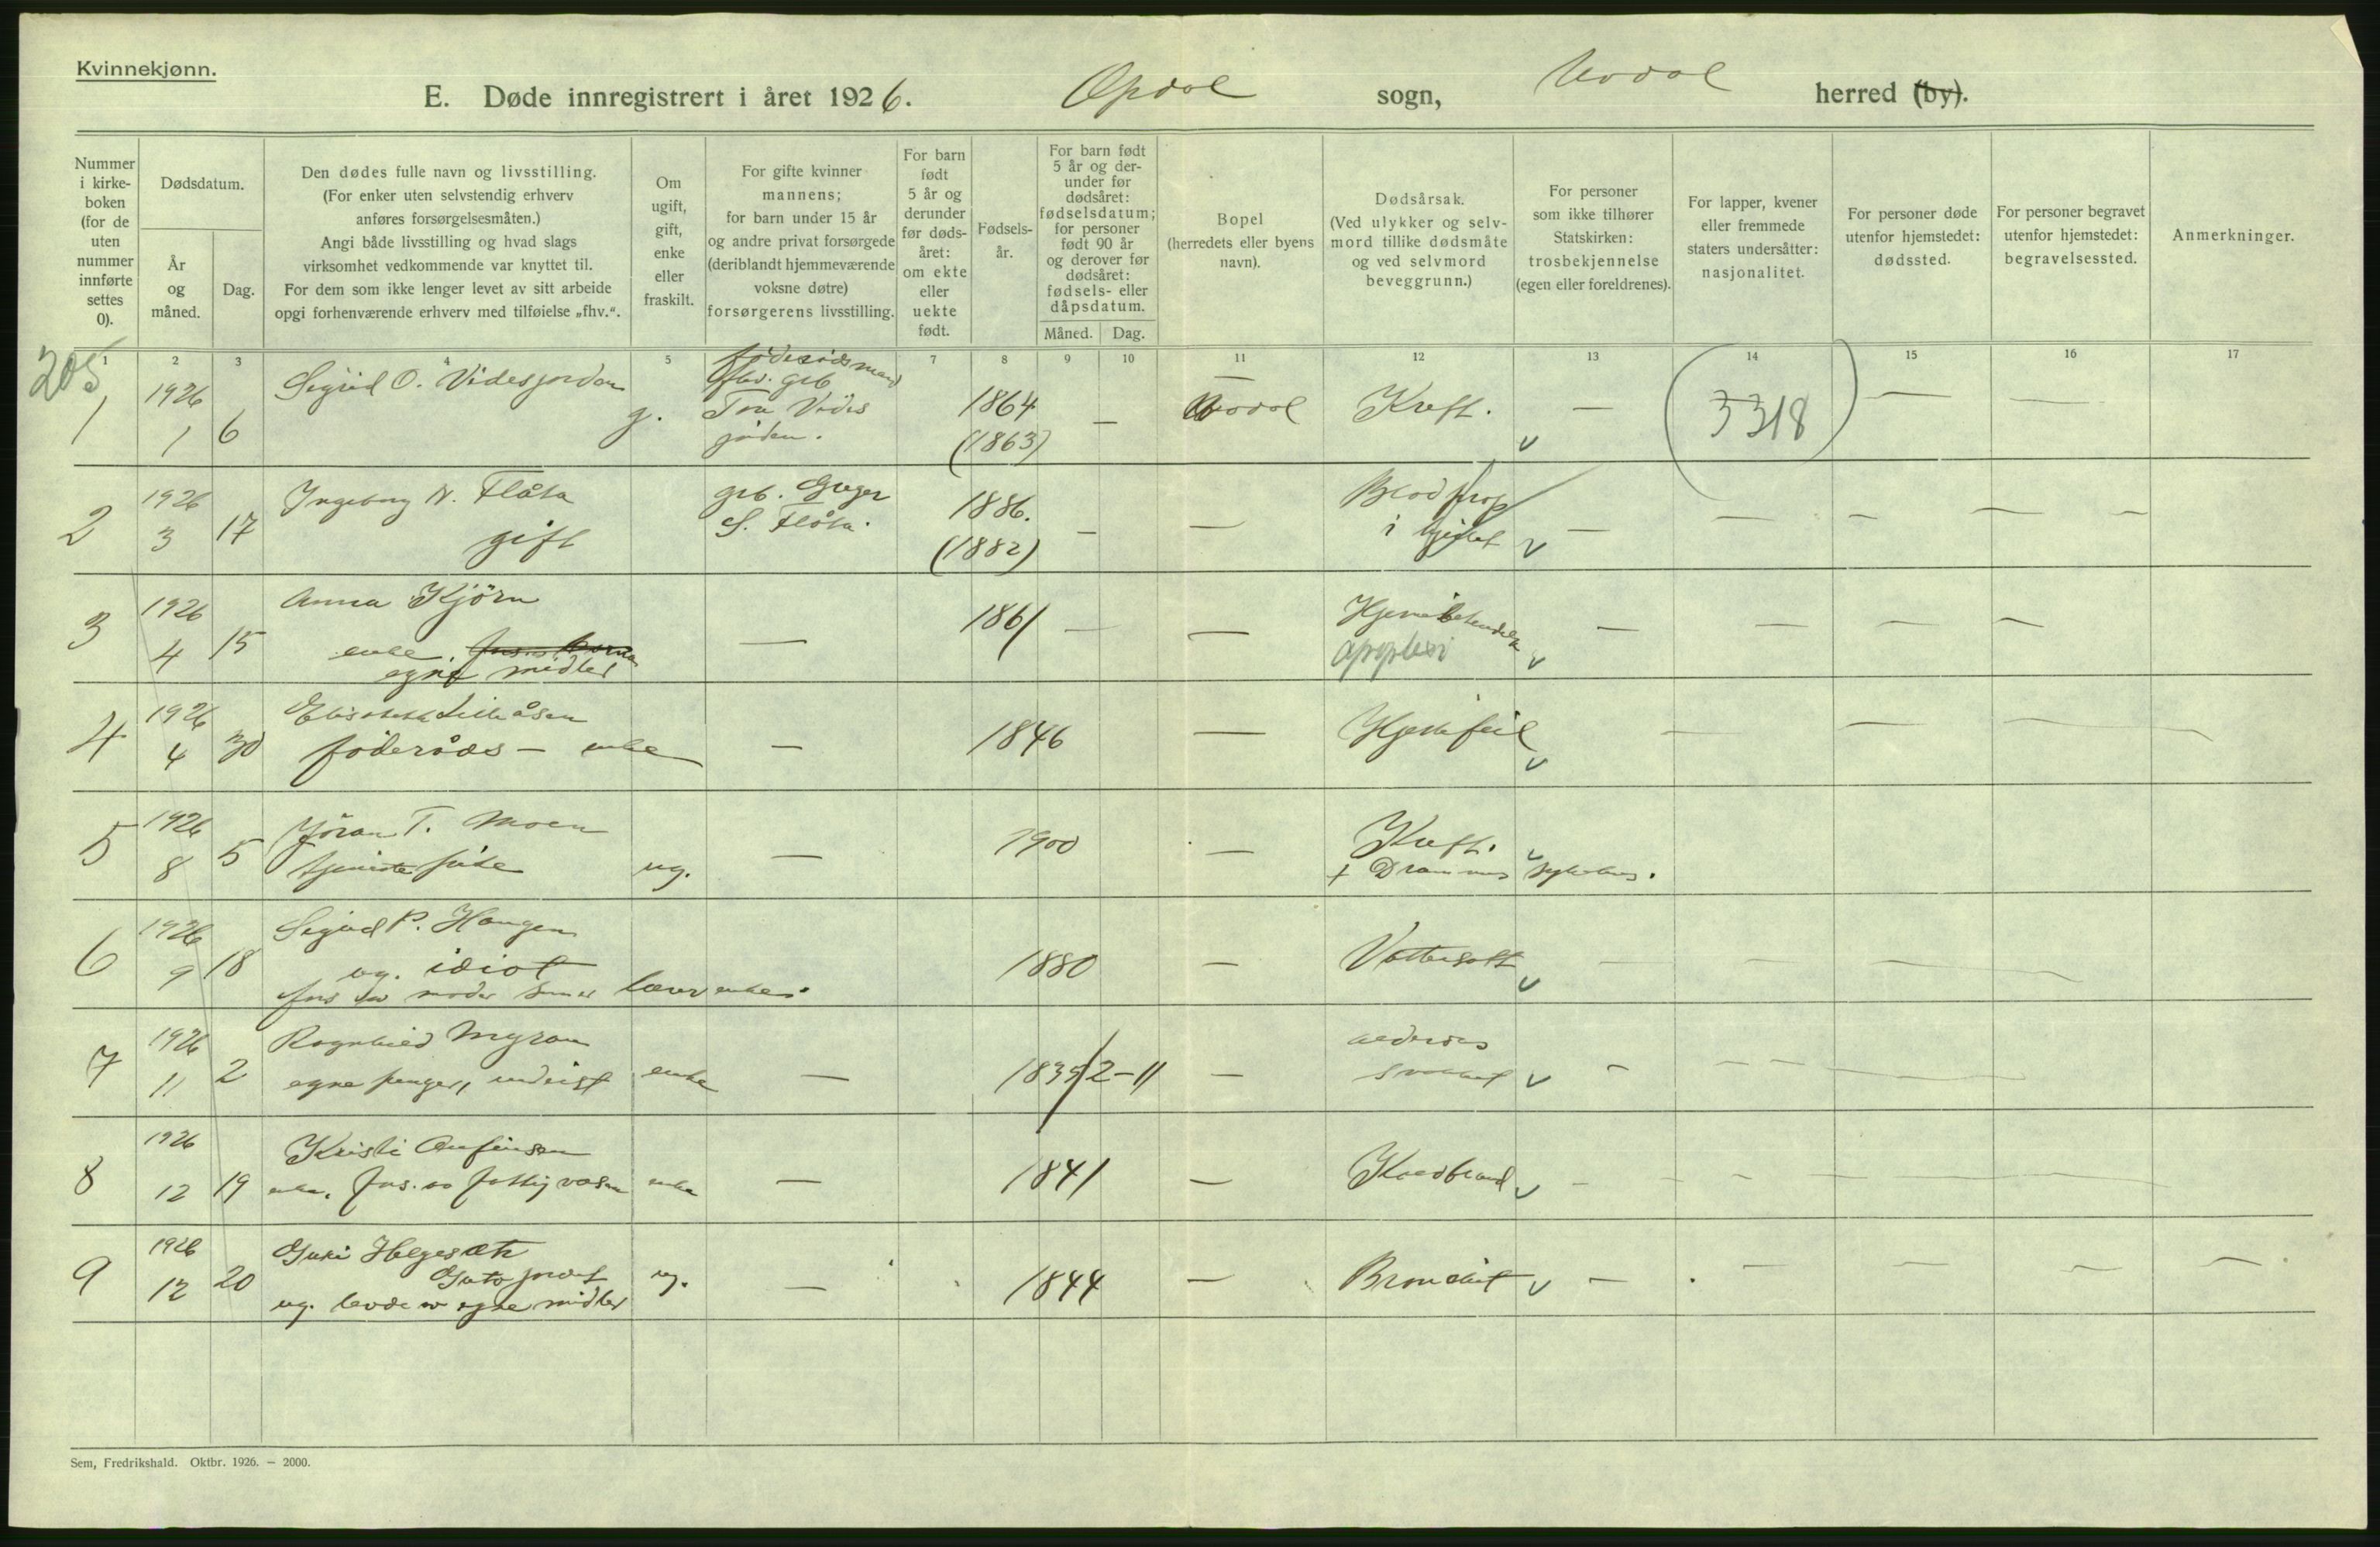 Kvinnekjønn.
E. Døde innregistrert i året 1926. Opdal sogn, Uvdal herred (by).
Nummer i kirkeboken (for de uten nummer innførte settes 0).
Dødsdatum.
År og måned.
Dag.
Den dødes fulle navn og livsstilling.
(For enker uten selvstendig erhverv
anføres forsørgelsesmåten.)
Angi både livsstilling og hvad slags
virksomhet vedkommende var knyttet til.
For dem som ikke lenger levet av sitt arbeide
opgi forhenværende erhverv med tilføielse „fhv.“.
Om ugift, gift, enke eller fraskilt.
For gifte kvinner
mannens;
for barn under 15 år
og andre privat forsørgede
(deriblandt hjemmeværende
voksne døtre)
forsørgerens livsstilling.
For barn født 5 år og derunder før dødsåret: om ekte eller uekte født.
Fødselsår.
For barn født 5 år og derunder før dødsåret: fødselsdatum; for personer født 90 år og derover før dødsåret: fødsels- eller dåpsdatum.
Måned. Dag.
Bopel
(herredets eller byens
navn).
Dødsårsak.
(Ved ulykker og selv-
mord tillike dødsmåte
og ved selvmord
beveggrunn.)
For personer
som ikke tilhører
Statskirken:
trosbekjennelse
(egen eller foreldrenes).
For lapper, kvener
eller fremmede
staters undersåtter:
nasjonalitet.
For personer døde
utenfor hjemstedet:
dødssted.
For personer begravet
utenfor hjemstedet:
begravelsessted.
Anmerkninger.
1 2 3 4 5 7 8 9 10 11 12 13 14 15 16 17
205
1 1926 1 6 Sigrid O. Videsjorden g. föderådsmand
fhv. grb
Tov Vides
jorden.
1864 (1863) — Uvdal Kreft. v — (3318) — —
2 1926 3 17 Ingeborg N. Flåta
gift
grb.
S. Flåta.
1886. (1882) — — Blodprop
i hjertet v — — — — —
3 1926 4 15 Anna Kjörn
enke.
egne midler
— 1861 — — apoplexi v — — — —
4 1926 4 30 Lilleåsen
föderåds- enke
— 1846 — Hjertefeil v — — — —
5 1926 8 5 Jöran T. Moen
tjenestepike ug.
— 1900 — Kreft. v
+ Drammens sykehus.
6 1926 9 18 Sigrid P. Haugen
ug. idiot
fors av moder som er
1880 — Vattersott v — — — —
7 1926 11 2 Ragnhild Myran
egne penger, enke
— 1835 / 2-11 — alderdoms
svakhet v — — —
8 1926 12 19 Kristi Anfinsen
enke, fors. av fattigvesen enke
— 1841 — Koldbrand v — — — —
9 1926 12 20 Guri Helgesdtr
ug. levde av egne midler ug.
— 1844 — Bronchit v — — — — —
Sem, Fredrikshald. Oktbr. 1926. — 2000.